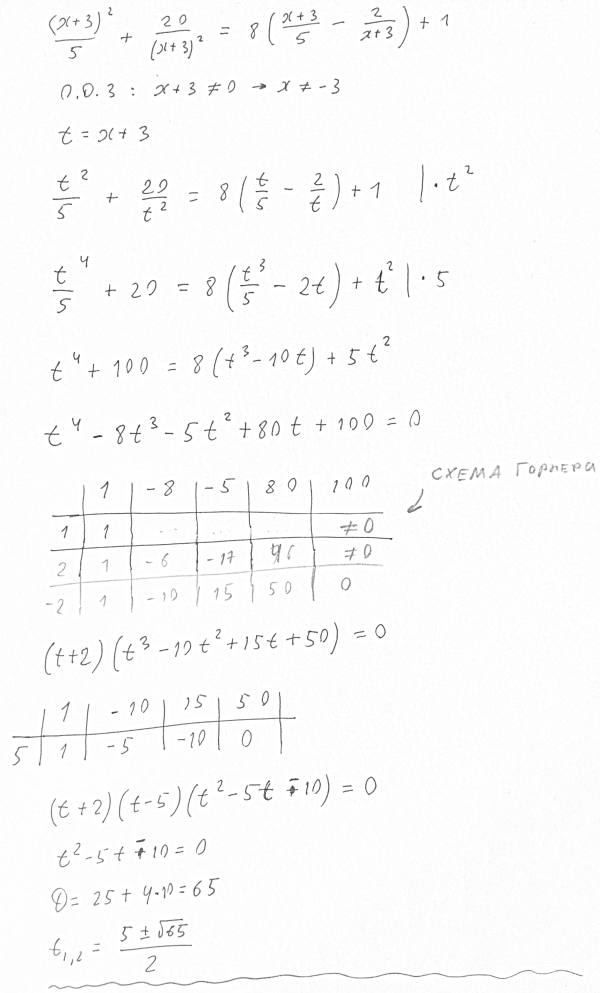 (x+3)²/5 + 20/(x+3)² = 8((x+3)/5 − 2/(x+3)) + 1
О.О.З : x+3 ≠ 0 → x ≠ −3
t = x+3
t²/5 + 20/t² = 8(t/5 − 2/t) + 1 | · t²
t⁴/5 + 20 = 8(t³/5 − 2t) + t² | · 5
t⁴ + 100 = 8(t³ − 10t) + 5t²
t⁴ − 8t³ − 5t² + 80t + 100 = 0
СХЕМА ГОРНЕРА
1 | −8 | −5 | 80 | 100
1 | 1 | ... | ... | ... | ≠0
2 | 1 | −6 | −17 | 46 | ≠0
−2 | 1 | −10 | 15 | 50 | 0
(t+2)(t³ − 10t² + 15t + 50) = 0
1 | −10 | 15 | 50
5 | 1 | −5 | −10 | 0
(t+2)(t−5)(t² − 5t − 10) = 0
t² − 5t − 10 = 0
D = 25 + 4·10 = 65
t₁,₂ = (5 ± √65)/2